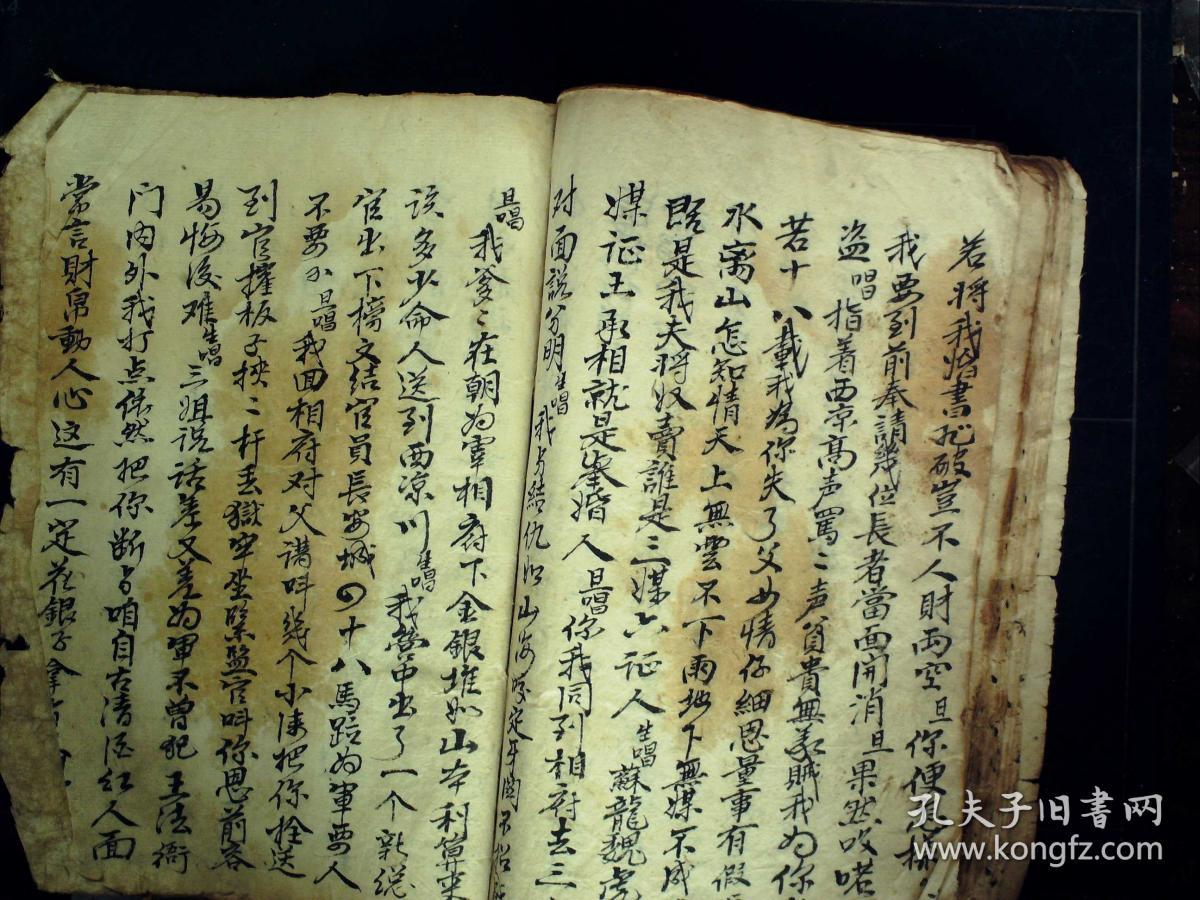 若将我婚書扯破豈不人財両空旦你便怎
我要到前奉請幾位長者當面開消旦果然哎喏
盗唱指着西京高声罵二声貧貴無義賊我为你
若十八載我為你失了父女情仔細思量事有假
水离山怎知情天上無雲不下雨地下無媒不成
既是我夫将奴賣誰是三媒六证人生唱蘇龍魏虎
媒证王承相就是奉婚人旦唱你我同到相府去三
对面説分明生唱我与結仇如山海
旦唱
我爹二在朝为宰相府下金銀堆如山本利算来
该多少命人送到西凉川生唱我营中出了一个新
官出下榜文结官員長安城四十八馬踏为軍要人
不要小旦唱我回相府对父講呌幾个小使把你拴送
到官擢板子挾二杆丢獄牢坐緊監官呌你思前容
易悔後难生唱三姐说话差又差为軍不曾犯王法衙
门内外我打点依然把你断与咱自古清酒紅人面
常言財帛動人心这有一定花銀子拿
孔夫子旧書网
www.kongfz.com